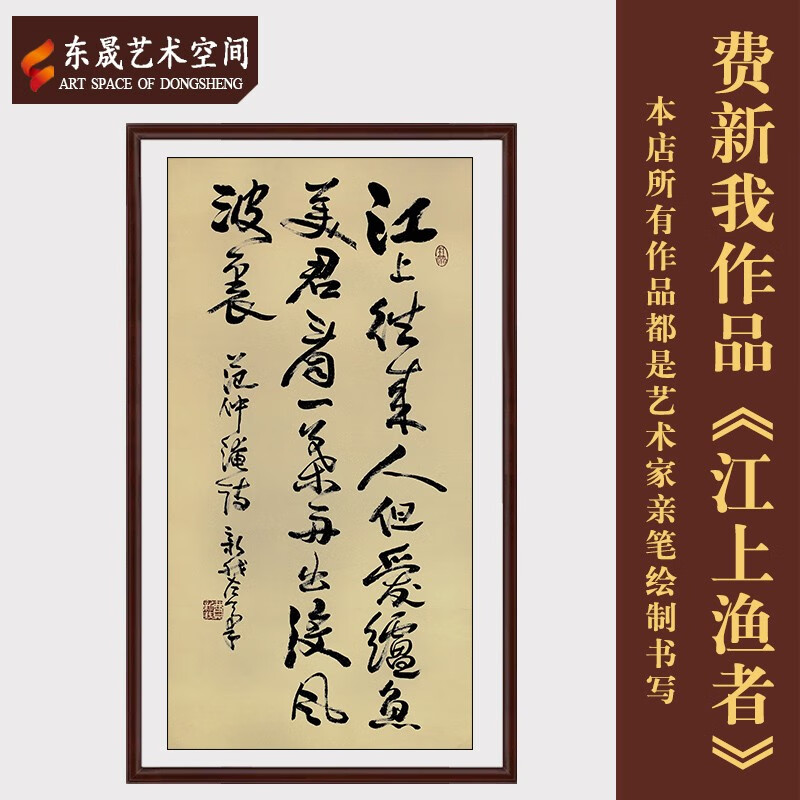 东晟艺术空间
ART SPACE OF DONGSHENG
费新我作品《江上渔者》
本店所有作品都是艺术家亲笔绘制书写
江上往來人但愛鱸魚
美君看一葉舟出没風
波裏
范仲淹詩 新我左筆